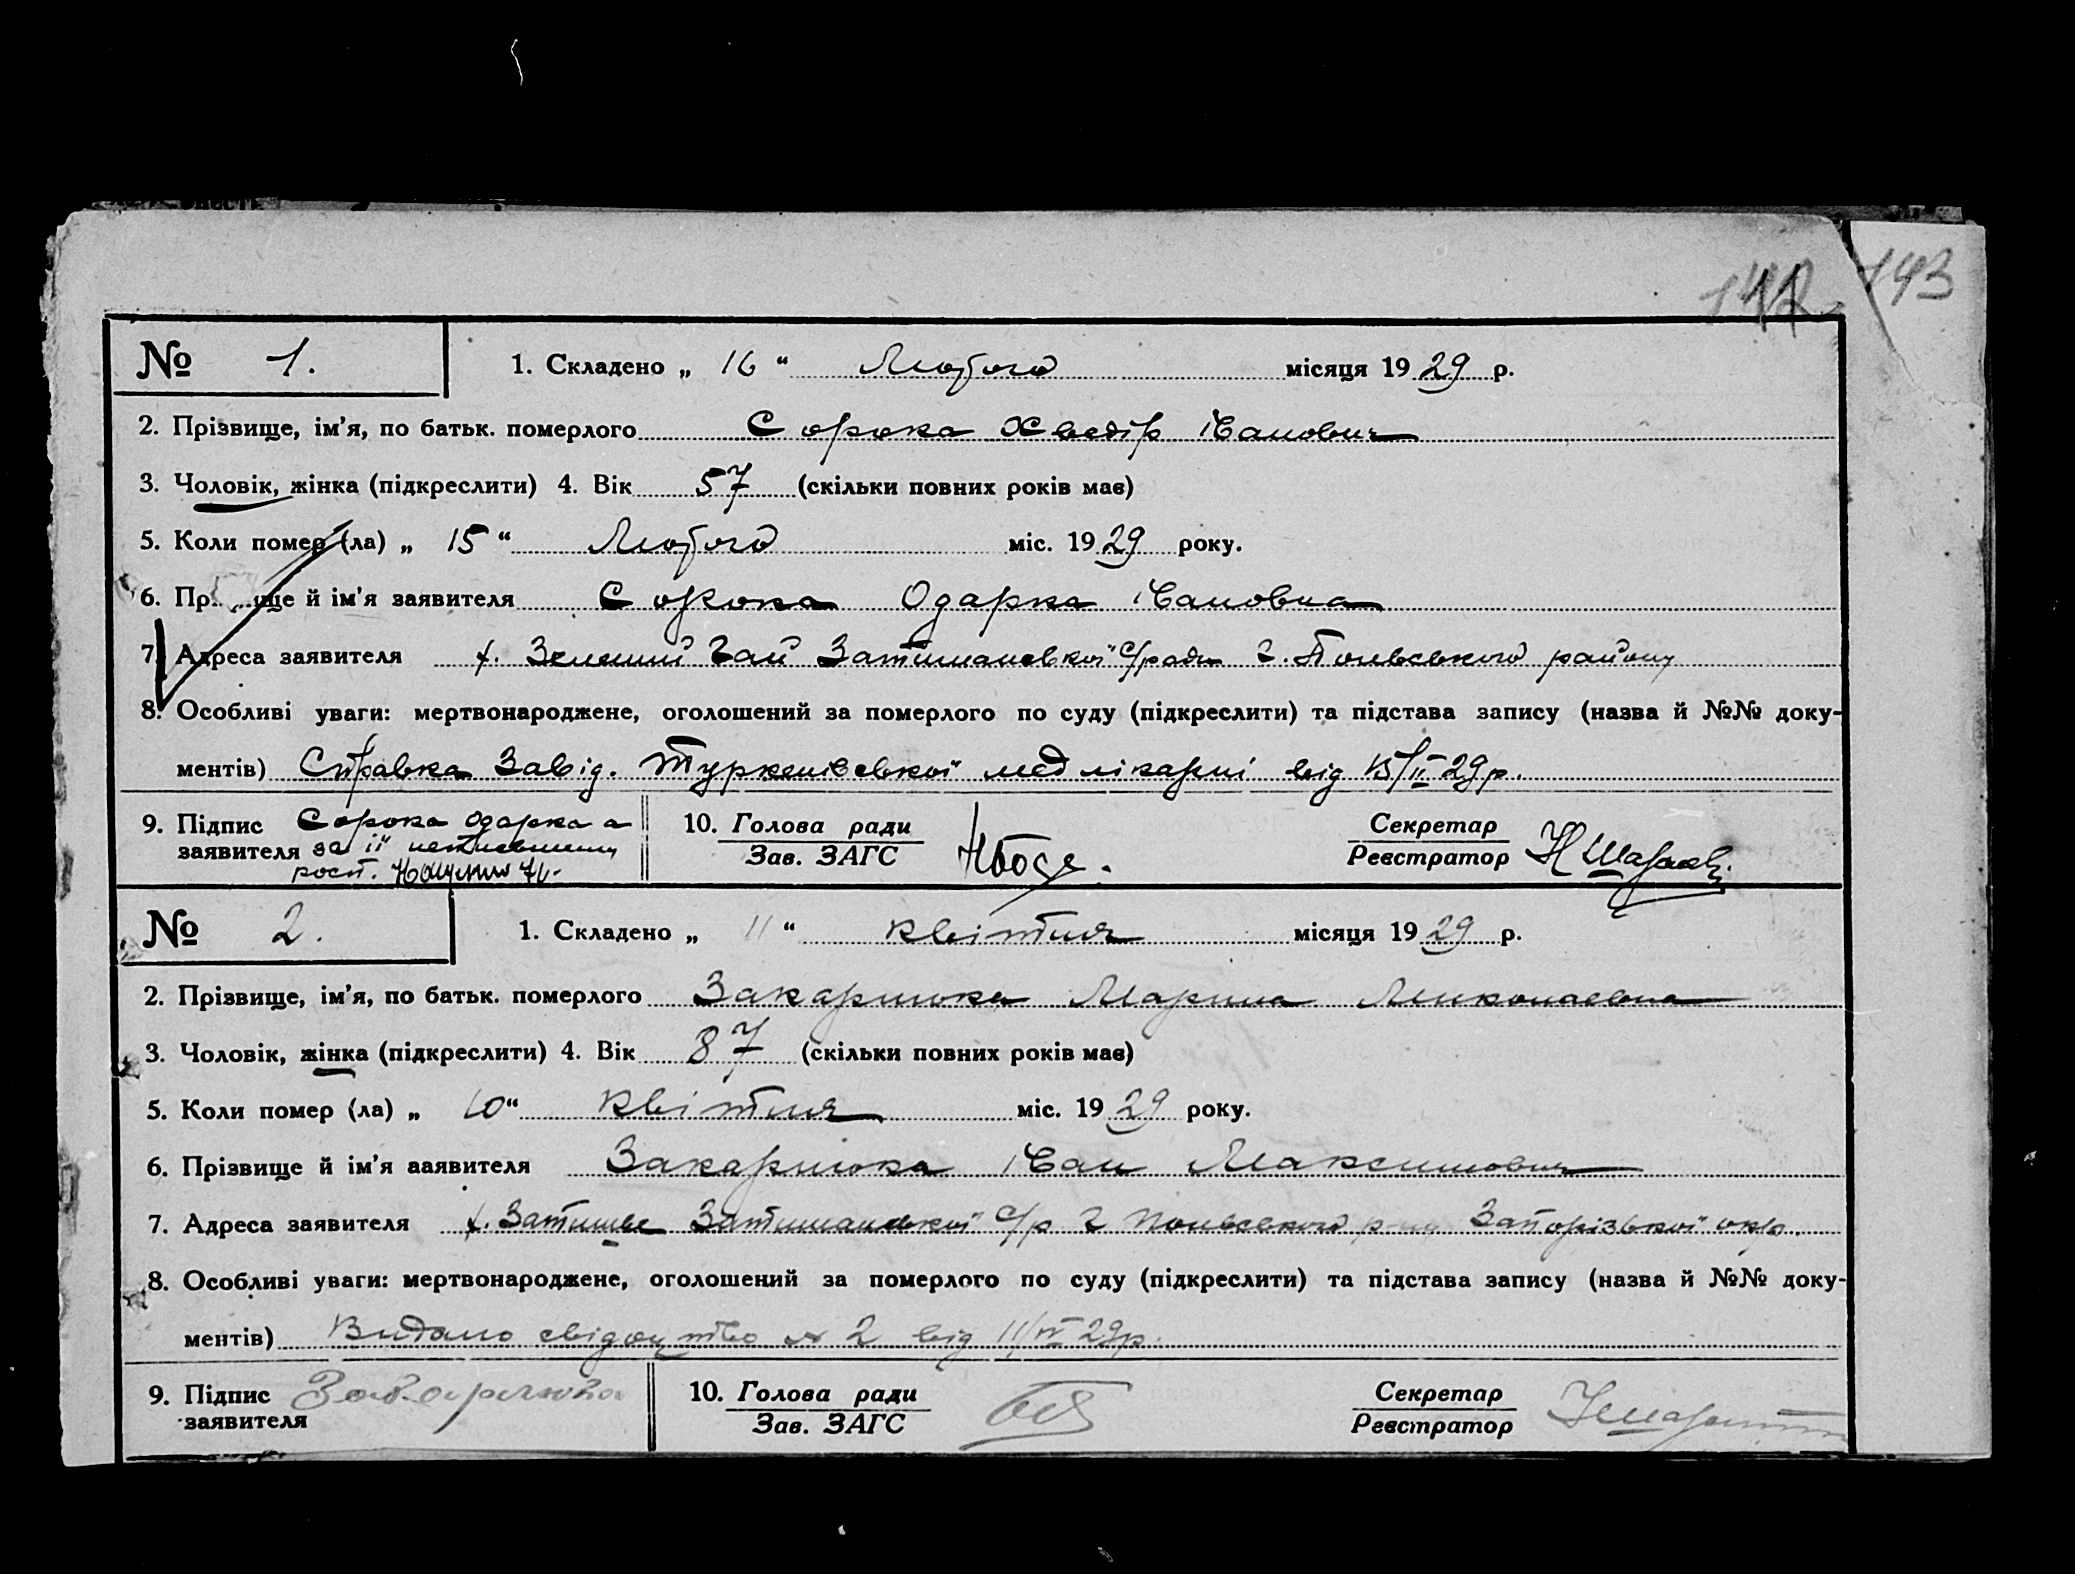 142 143
№ 1. 1. Складено „ 16 “ Лютого місяця 1929 р.
2. Прізвище, ім’я, по батьк. померлого Сорока Хведір Іванович
3. Чоловік, жінка (підкреслити) 4. Вік 57 (скільки повних років має)
5. Коли помер (ла) „ 15 “ Лютого міс. 1929 року.
6. Пр...ще й ім’я заявителя Сорока Одарка Івановна
7. Адреса заявителя х. Зелений Гай Затишанської с/ради Г. Польського району
8. Особливі уваги: мертвонароджене, оголошений за померлого по суду (підкреслити) та підстава запису (назва й №№ доку-
ментів) Справка Завід. Туркенівської медлікарні від 15/II 29 р.
9. Підпис Сорока Одарка а 10. Голова ради Секретар
заявителя за її неписьменну Зав. ЗАГС Реєстратор
розп.
№ 2. 1. Складено „ 11 “ квітня місяця 1929 р.
2. Прізвище, ім’я, по батьк. померлого Закарлюка Марина Миколаевна
3. Чоловік, жінка (підкреслити) 4. Вік 87 (скільки повних років має)
5. Коли помер (ла) „ 10 “ квітня міс. 1929 року.
6. Прізвище й ім’я ааявителя Закарлюка Іван Максимович
7. Адреса заявителя х. Затишье Затишанської с/р Г Польського р-ну Запорізької окр.
8. Особливі уваги: мертвонароджене, оголошений за померлого по суду (підкреслити) та підстава запису (назва й №№ доку-
ментів) Видано свідоцтво № 2 від 11/IV 29 р.
9. Підпис Закарлюка 10. Голова ради Секретар
заявителя Зав. ЗАГС Реєстратор